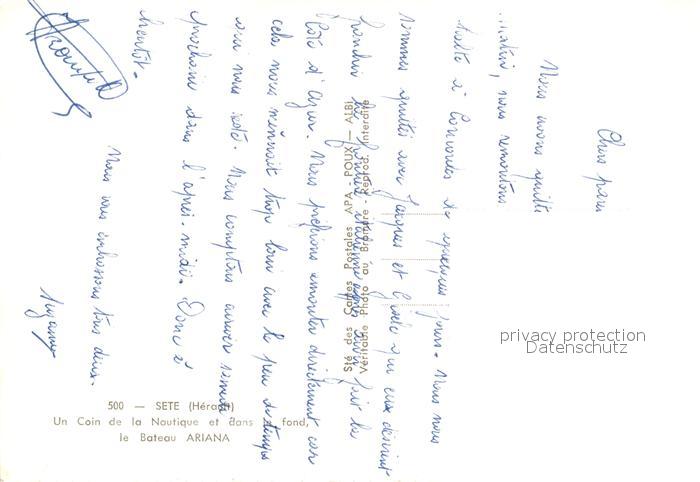 Chers parents
Nous avons quitté
matin, nous remontons
halte à Cordes de quelques jours. Nous nous
sommes quittés avec Jacques et Gisèle qui eux désirent
franchir la frontière italienne après avoir fait la
Côte d'Azur. Nous préférions remonter directement car
cela nous mènerait trop loin avec le peu de temps
qui nous reste. Nous comptons arriver samedi
prochain dans l'après-midi. Donc à
bientôt.
Nous vous embrassons tous deux.
Suzanne
Sté des Cartes Postales APA - POUX — ALBI
Véritable Photo au Bromure - Reprod. Interdite
500 — SETE (Hérault)
Un Coin de la Nautique et dans le fond,
le Bateau ARIANA
privacy protection
Datenschutz